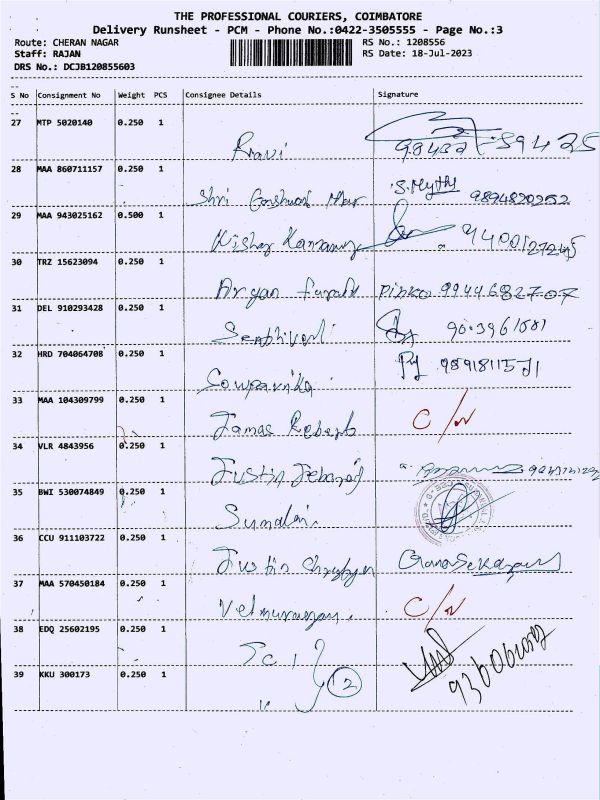 THE PROFESSIONAL COURIERS, COIMBATORE
Delivery Runsheet - PCM - Phone No.:0422-3505555 - Page No.:3
Route: CHERAN NAGAR RS No.: 1208556
Staff: RAJAN RS Date: 18-Jul-2023
DRS No.: DCJB120855603
S No Consignment No Weight PCS Consignee Details Signature
27 MTP 5020140 0.250 1
Ravi
28 MAA 860711157 0.250 1
Shri 9894820252
29 MAA 943025162 0.500 1
Kishor
30 TRZ 15623094 0.250 1
Aryan 9944682707
31 DEL 910293428 0.250 1
Senthivel
32 HRD 704064708 0.250 1
Souparnika
33 MAA 104309799 0.250 1
James Robert C/N
34 VLR 4843956 0.250 1
Justin
35 BWI 530074849 0.250 1
36 CCU 911103722 0.250 1
Justin Gnanasekaran
37 MAA 570450184 0.250 1
Velmurugan. C/N
38 EDQ 25602195 0.250 1
39 KKU 300173 0.250 1
2